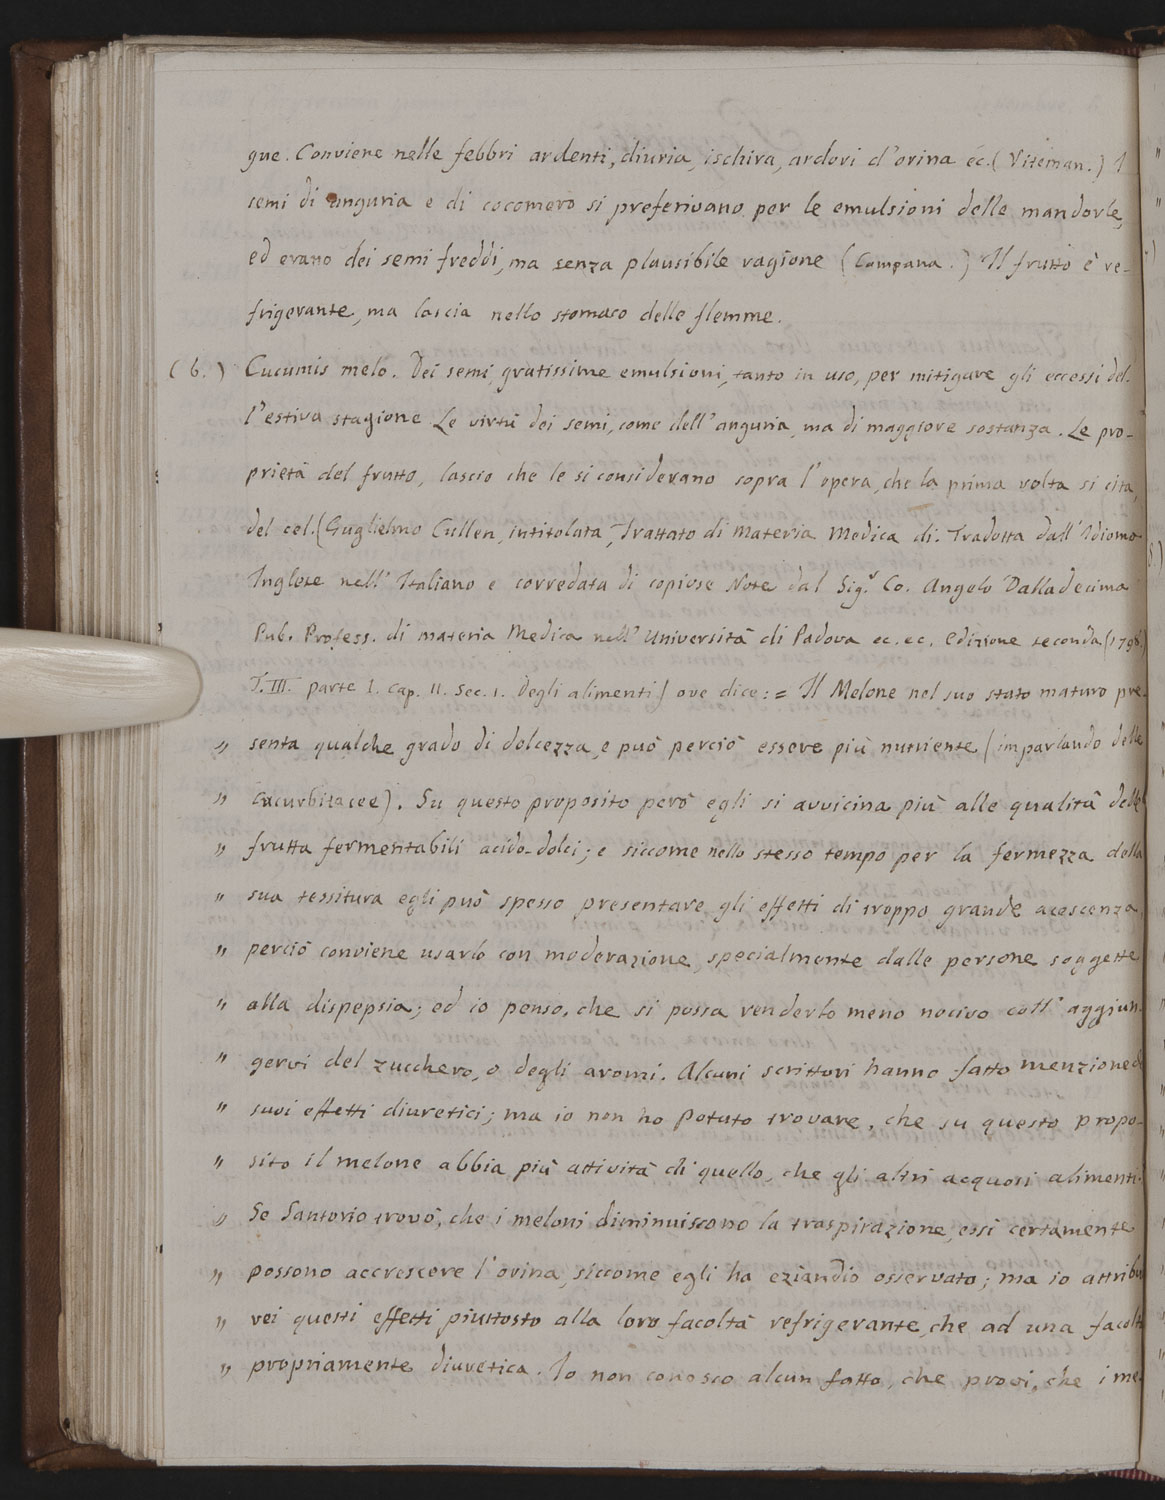 gue. Conviene nelle febbri ardenti, diuria, ischira, ardori d'orina ec. (Viteman.) I
semi di anguria e di cocomero si preferivano per le emulsioni delle mandorle,
ed erano dei semi freddi, ma senza plausibile ragione (Campana.) Il frutto è re-
frigerante, ma lascia nello stomaco delle flemme.
(6.) Cucumis melo. Dei semi, gratissime emulsioni, tanto in uso, per mitigare gli eccessi del-
l'estiva stagione Le virtù dei semi, come dell'anguria, ma di maggiore sostanza. Le pro-
prietà del frutto, lascio che le si considerano sopra l'opera, che la prima volta si cita,
del cel. (Guglielmo Cullen, intitolata, Trattato di Materia Medica di. Tradotta dall'Idioma
Inglese nell'Italiano e corredata di copiose Note dal Sig.r Co. Angelo Dalladecima
Pub. Profess. di materia Medica nell'Università di Padova ec. ec. Edizione seconda (1798.)
T. III. parte I. Cap. II. Sec. 1. Degli alimenti) ove dice: = Il Melone nel suo stato maturo pre-
„ senta qualche grado di dolcezza, e può perciò essere più nutriente (imparlando delle
„ Cucurbitacee). Su questo proposito però egli si avvicina più alle qualità delle
„ frutta fermentabili acido-dolci; e siccome nello stesso tempo per la fermezza della
„ sua tessitura egli può spesso presentare gli effetti di troppo grande acescenza,
„ perciò conviene usarlo con moderazione, specialmente dalle persone soggette
„ alla dispepsia; ed io penso, che si possa renderlo meno nocivo coll'aggiun-
„ gervi del zucchero, o degli aromi. Alcuni scrittori hanno fatto menzione di
„ suoi effetti diuretici; ma io non ho potuto trovare, che su questo propo-
„ sito il melone abbia più attività di quello, che gli altri acquosi alimenti.
„ Se Santorio trovò, che i meloni diminuiscono la traspirazione, essi certamente
„ possono accrescere l'orina, siccome egli ha eziandio osservato; ma io attribui
„ rei questi effetti piuttosto alla loro facoltà refrigerante, che ad una facoltà
„ propriamente diuretica. Io non conosco alcun fatto, che provi, che i me-